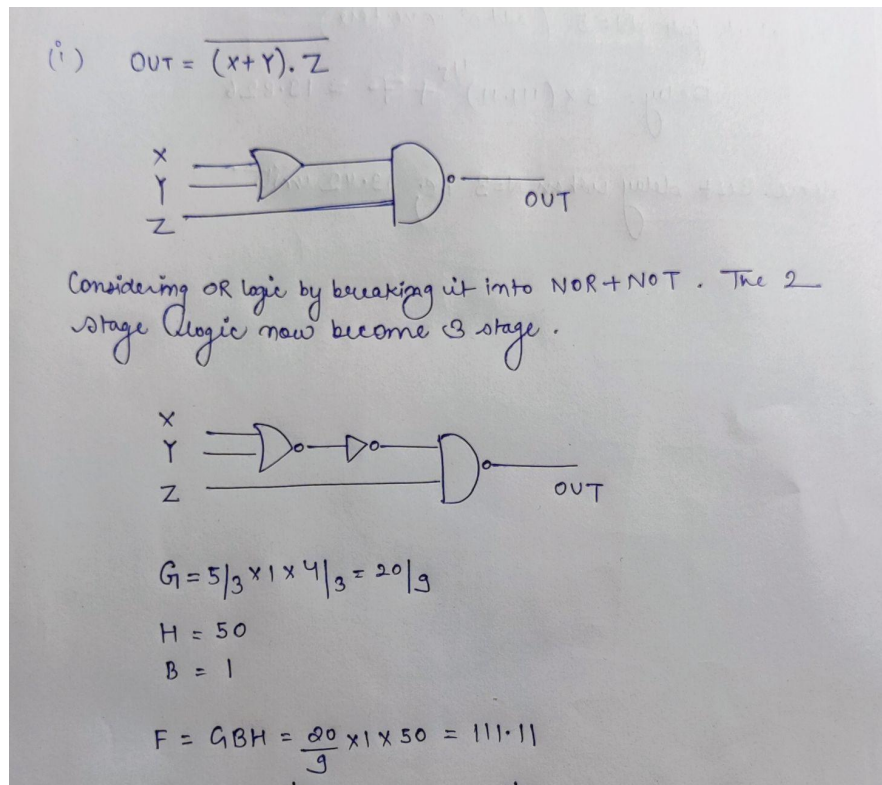 (i) OUT = \overline{(X+Y).Z}
X
Y
Z
OUT
Considering OR logic by breaking it into NOR + NOT. The 2
stage logic now become 3 stage.
X
Y
Z
OUT
G = 5/3 × 1 × 4/3 = 20/9
H = 50
B = 1
F = GBH = 20/9 × 1 × 50 = 111.11